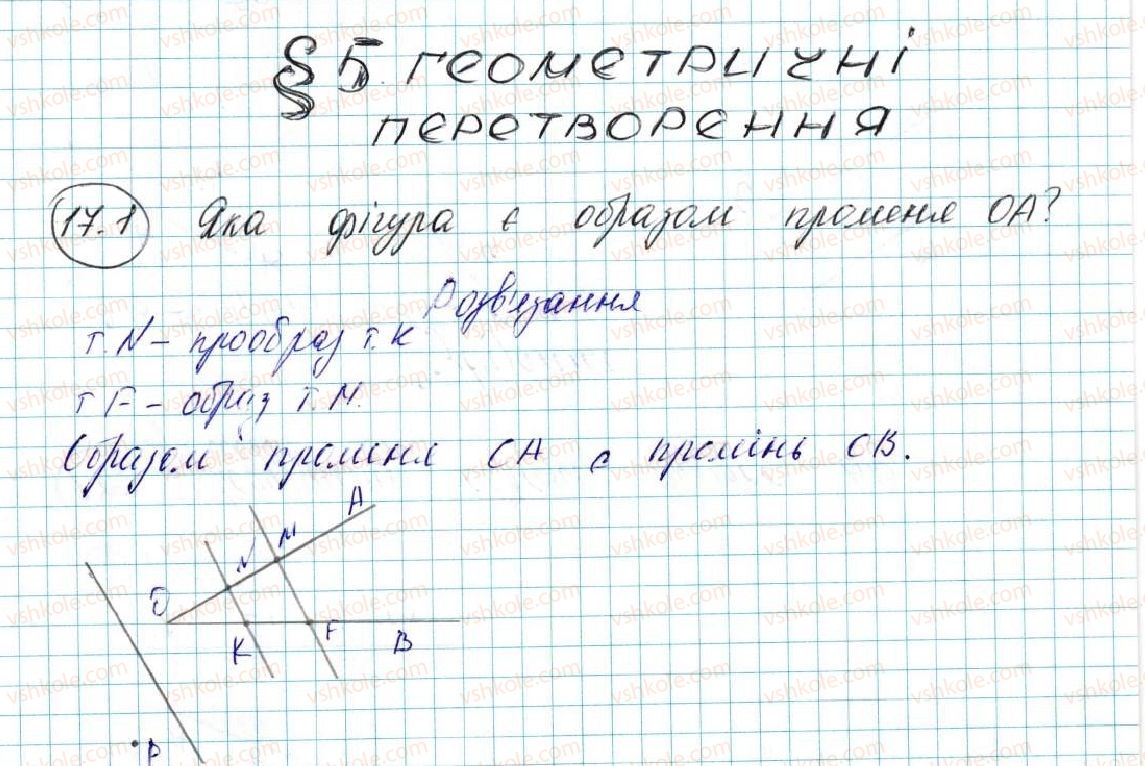 § 5 геометричні
перетворення
17.1 Яка фігура є образом променя ОА?
Розв'язання
т. N – прообраз т. К
т F – образ т. М.
Образом променя ОА є промінь ОВ.
А
М
N
О
К
F
В
Р
vshkole.com